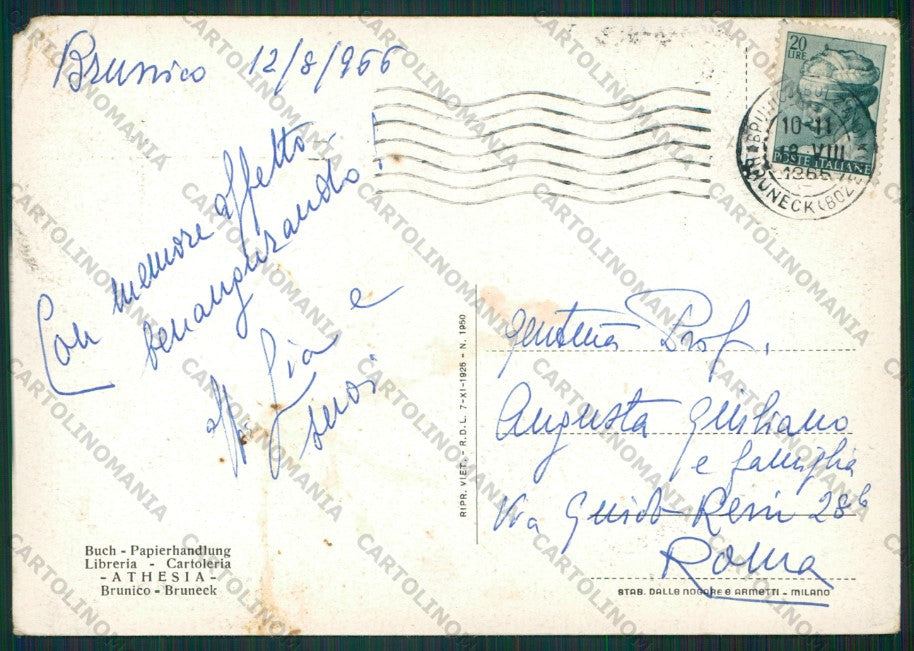 Brunico 12/8/966
Con memore affetto
benaugurando!
aff. Lia e
suoi
Buch - Papierhandlung
Libreria - Cartoleria
- ATHESIA -
Brunico - Bruneck
RIPR. VIET. - R.D.L. 7-XI-1925 - N. 1950
20
LIRE
POSTE ITALIANE
10-11
VIII
BRUNECK (BOZ
Prof.
Augusta Giuliano
e famiglia
Via Guido Reni 28b
Roma
STAB. DALLE NOGARE E ARMETTI - MILANO
CARTOLINOMANIA